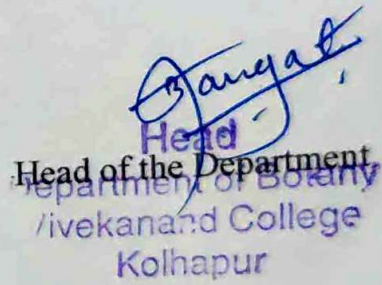 Head
Head of the Department
Department of Botany
Vivekanand College
Kolhapur